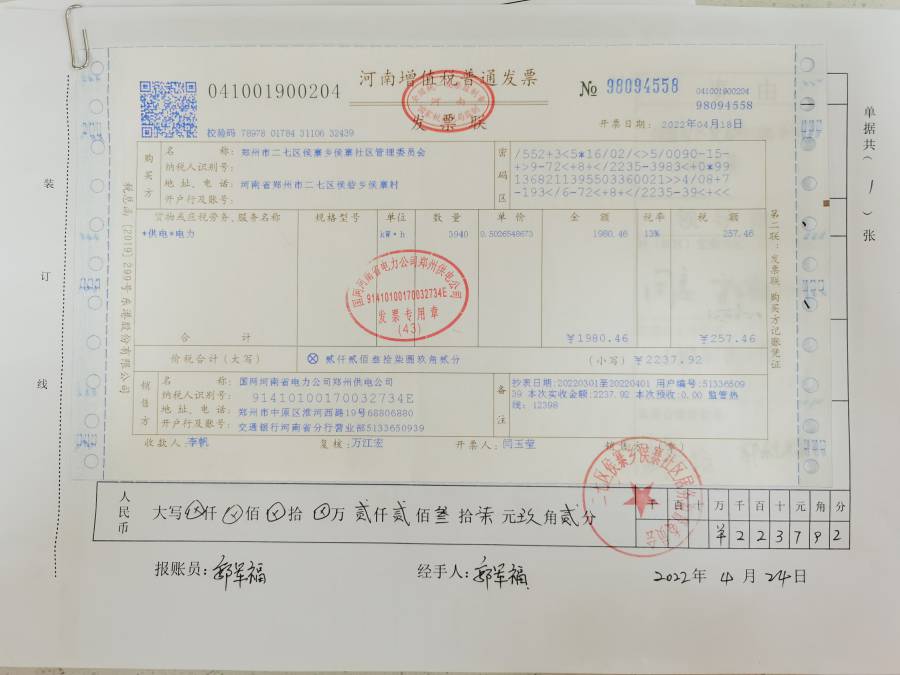 041001900204
河南增值税普通发票
№ 98094558
041001900204
98094558
发票联
校验码 78978 01784 31106 32439
开票日期: 2022年04月18日
购买方
名 称: 郑州市二七区侯寨乡侯寨社区管理委员会
纳税人识别号:
地址、电话: 河南省郑州市二七区侯砦乡侯寨村
开户行及账号:
密码区
/552+3<5*16/02/<>5/0090-15-
+>9-72<+8+</2235-3983<+0*99
1368211395503360021>>4/08+7
-193</6-72<+8+</2235-39<+<<
货物或应税劳务、服务名称 规格型号 单位 数量 单价 金额 税率 税额
*供电*电力 kW·h 3940 0.5026548673 1980.46 13% 257.46
合计 ¥1980.46 ¥257.46
价税合计(大写) ⊗贰仟贰佰叁拾柒圆玖角贰分 (小写) ¥2237.92
销售方
名 称: 国网河南省电力公司郑州供电公司
纳税人识别号: 91410100170032734E
地址、电话: 郑州市中原区淮河西路19号68806880
开户行及账号: 交通银行河南省分行营业部5133650939
备注
抄表日期:20220301至20220401 用户编号:51336509
39 本次实收金额:2237.92 本次预收:0.00 监管热
线: 12398
收款人: 李帆 复核: 万江宏 开票人: 闫玉莹
税总函[2019]299号东港股份有限公司
第二联:发票联 购买方记账凭证
国网河南省电力公司郑州供电公司
91410100170032734E
发票专用章
(43)
装
订
线
单据共(1)张
人民币
大写⊗仟⊗佰⊗拾⊗万贰仟贰佰叁拾柒元玖角贰分
千 百 十 万 千 百 十 元 角 分
¥ 2 2 3 7 9 2
报账员: 郭军福
经手人: 郭军福
2022年4月24日